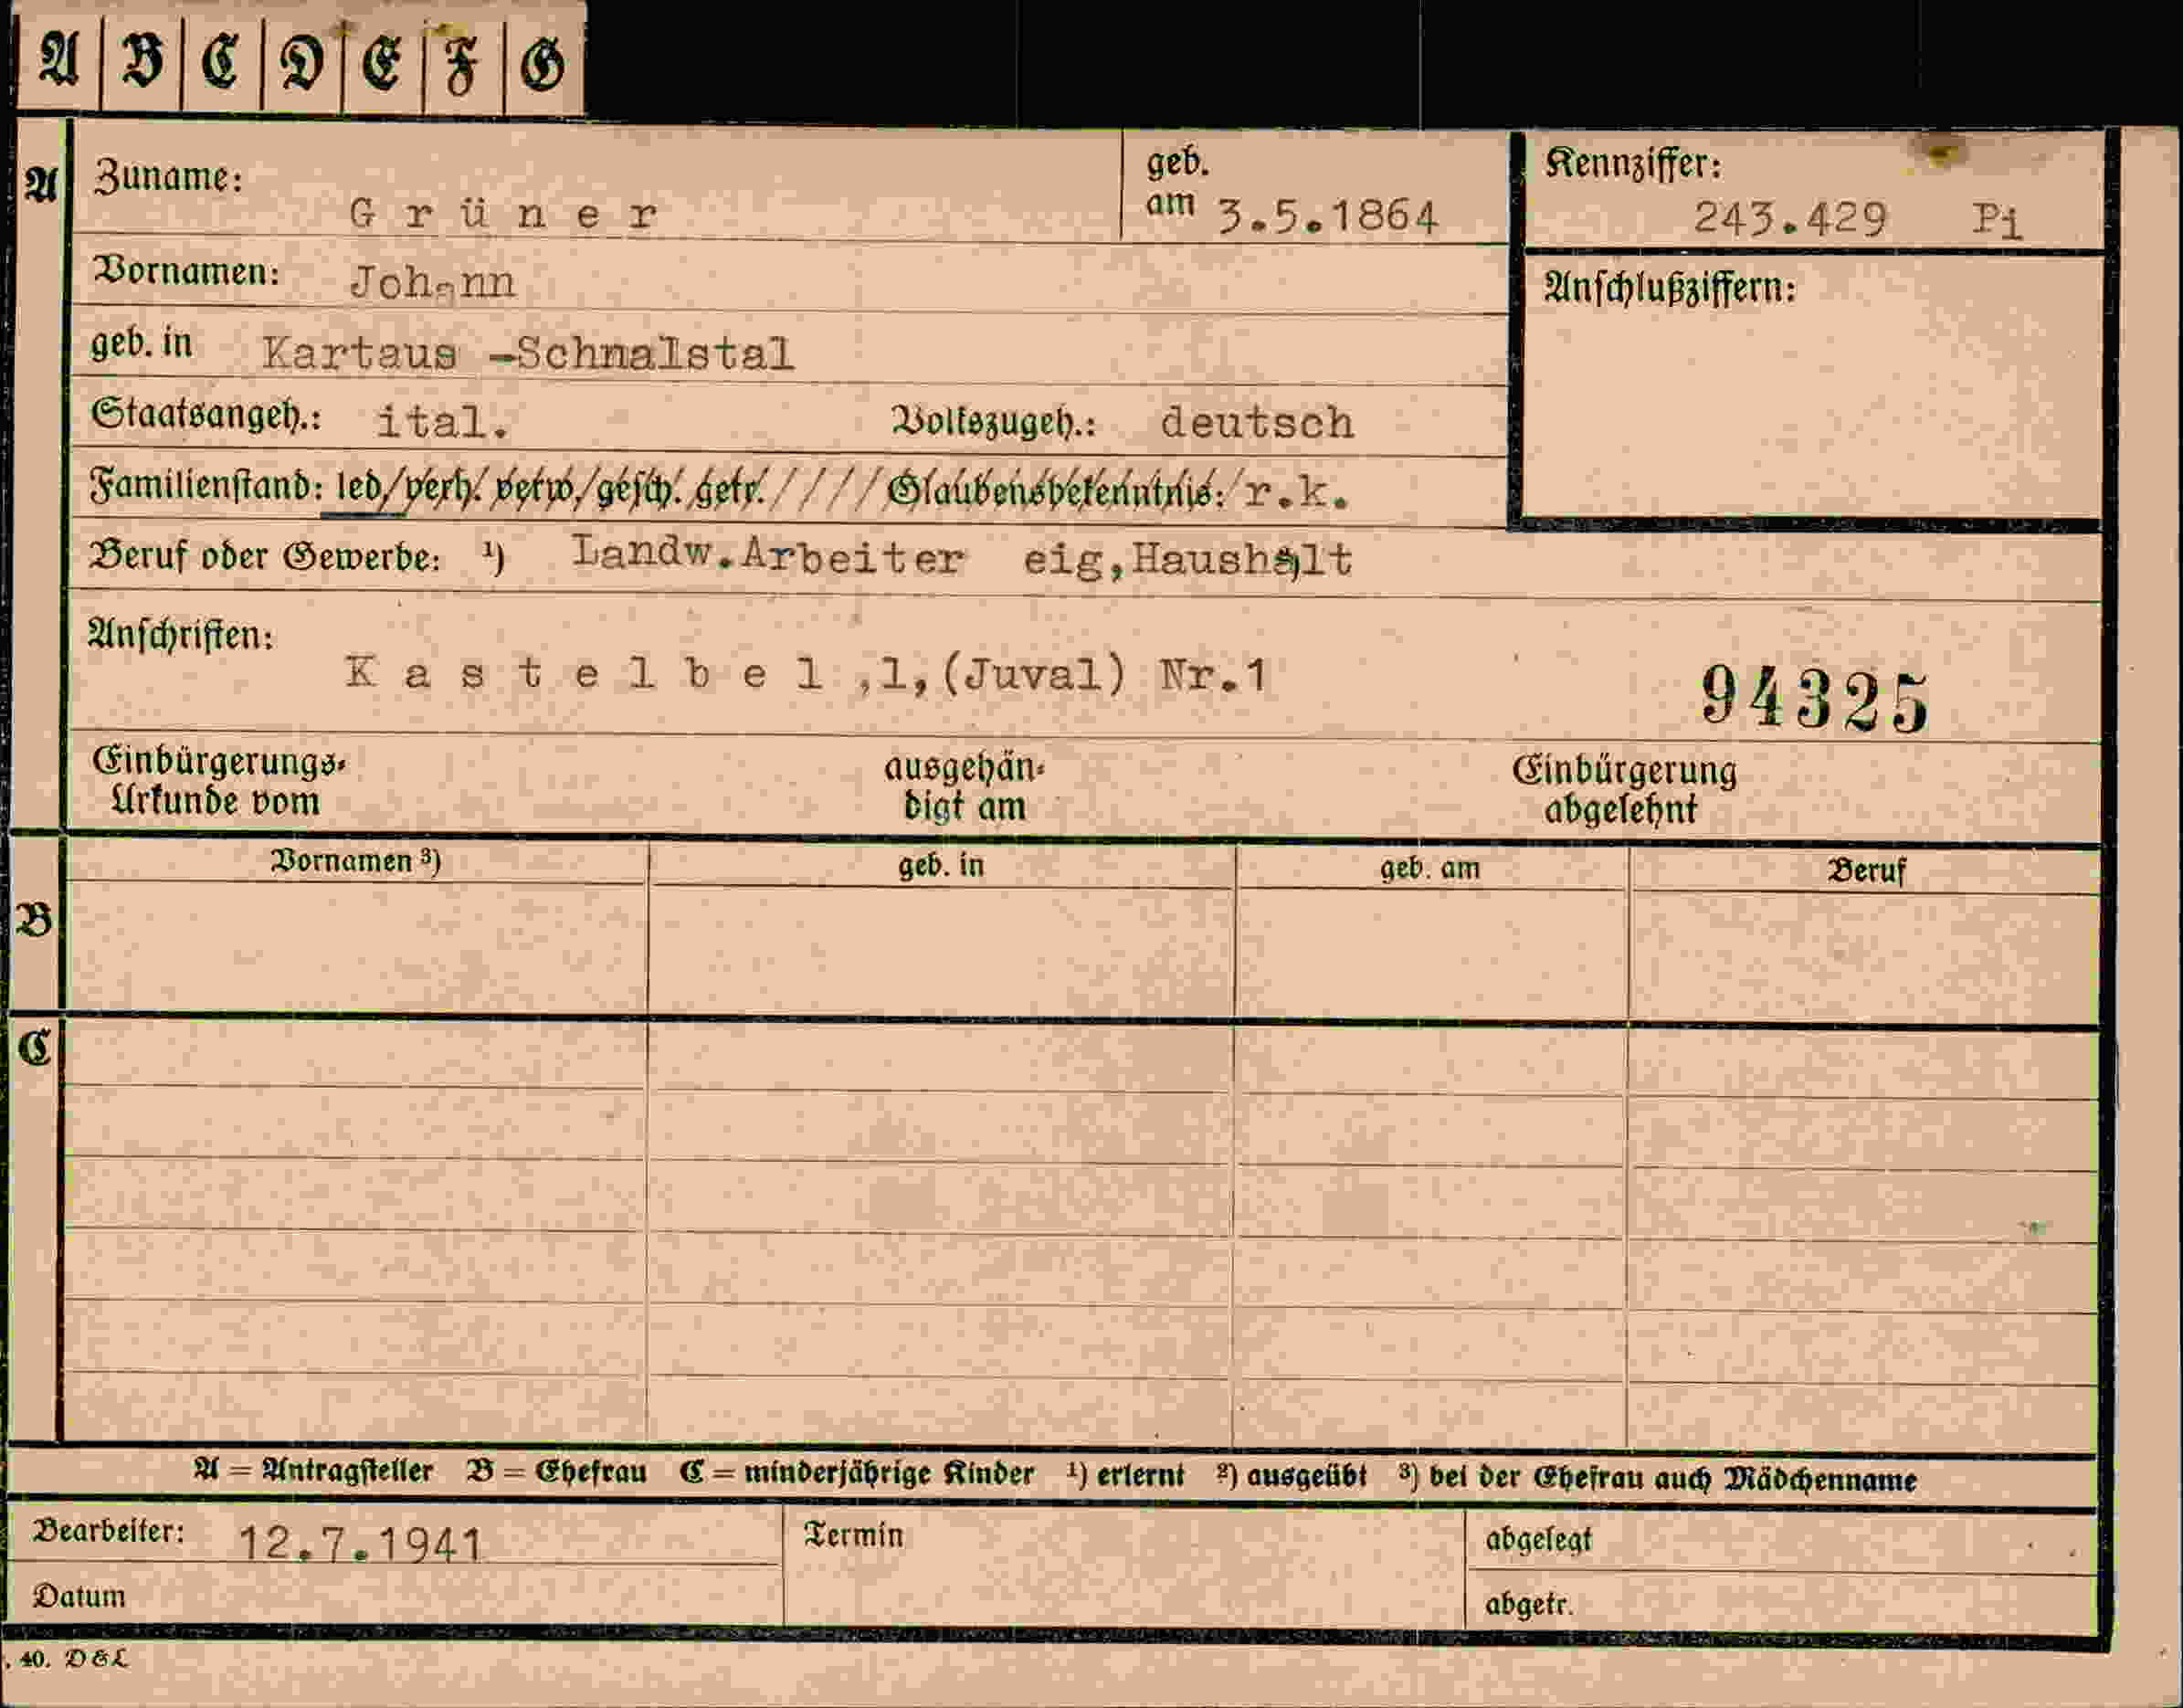 A B C D E F G
A Zuname: Grüner geb. am 3.5.1864 Kennziffer: 243.429 Pi
Vornamen: Johann Anschlußziffern:
geb. in Kartaus -Schnalstal
Staatsangeh.: ital. Volkszugeh.: deutsch
Familienstand: led/verh. verw./gesch. getr. //// Glaubensbekenntnis: r.k.
Beruf oder Gewerbe: ¹) Landw.Arbeiter eig,Haushalt
Anschriften:
Kastelbel,l,(Juval) Nr.1 94325
Einbürgerungs- ausgehän- Einbürgerung
Urkunde vom digt am abgelehnt
Vornamen ³) geb. in geb. am Beruf
B
C
A = Antragsteller B = Ehefrau C = minderjährige Kinder ¹) erlernt ²) ausgeübt ³) bei der Ehefrau auch Mädchenname
Bearbeiter: 12.7.1941 Termin abgelegt
Datum abgetr.
. 40. D&L